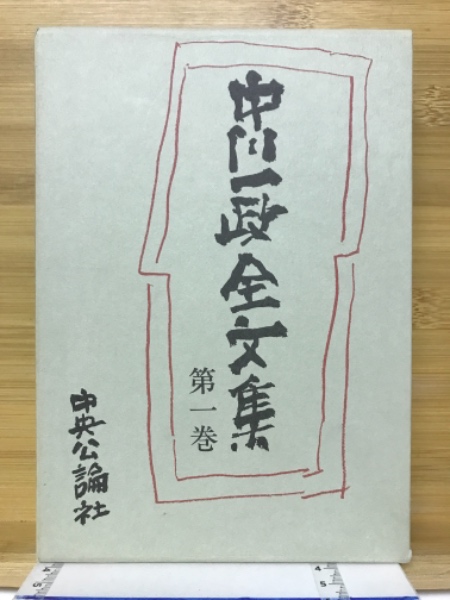 中川一政全文集
第一巻
中央公論社